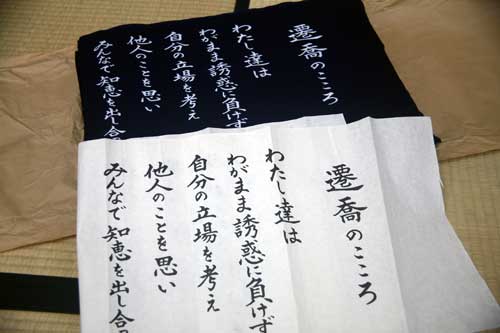 遷喬のこころ
わたし達は
わがまま誘惑に負けず
自分の立場を考え
他人のことを思い
みんなで知恵を出し合
遷喬のこころ
わたし達は
わがまま誘惑に負けず
自分の立場を考え
他人のことを思い
みんなで知恵を出し合